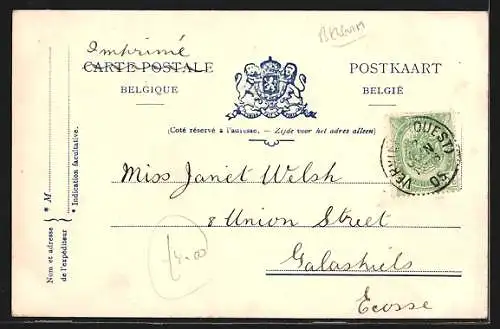 Belgium
Imprimé
CARTE POSTALE
POSTKAART
BELGIQUE
BELGIË
(Coté réservé à l'adresse. - Zijde voor het adres alleen)
Miss Janet Welsh
8 Union Street
Galashiels
Ecosse
£4.00
* M
Nom et adresse
de l'expéditeur
* Indication facultative.
OUEST)
05